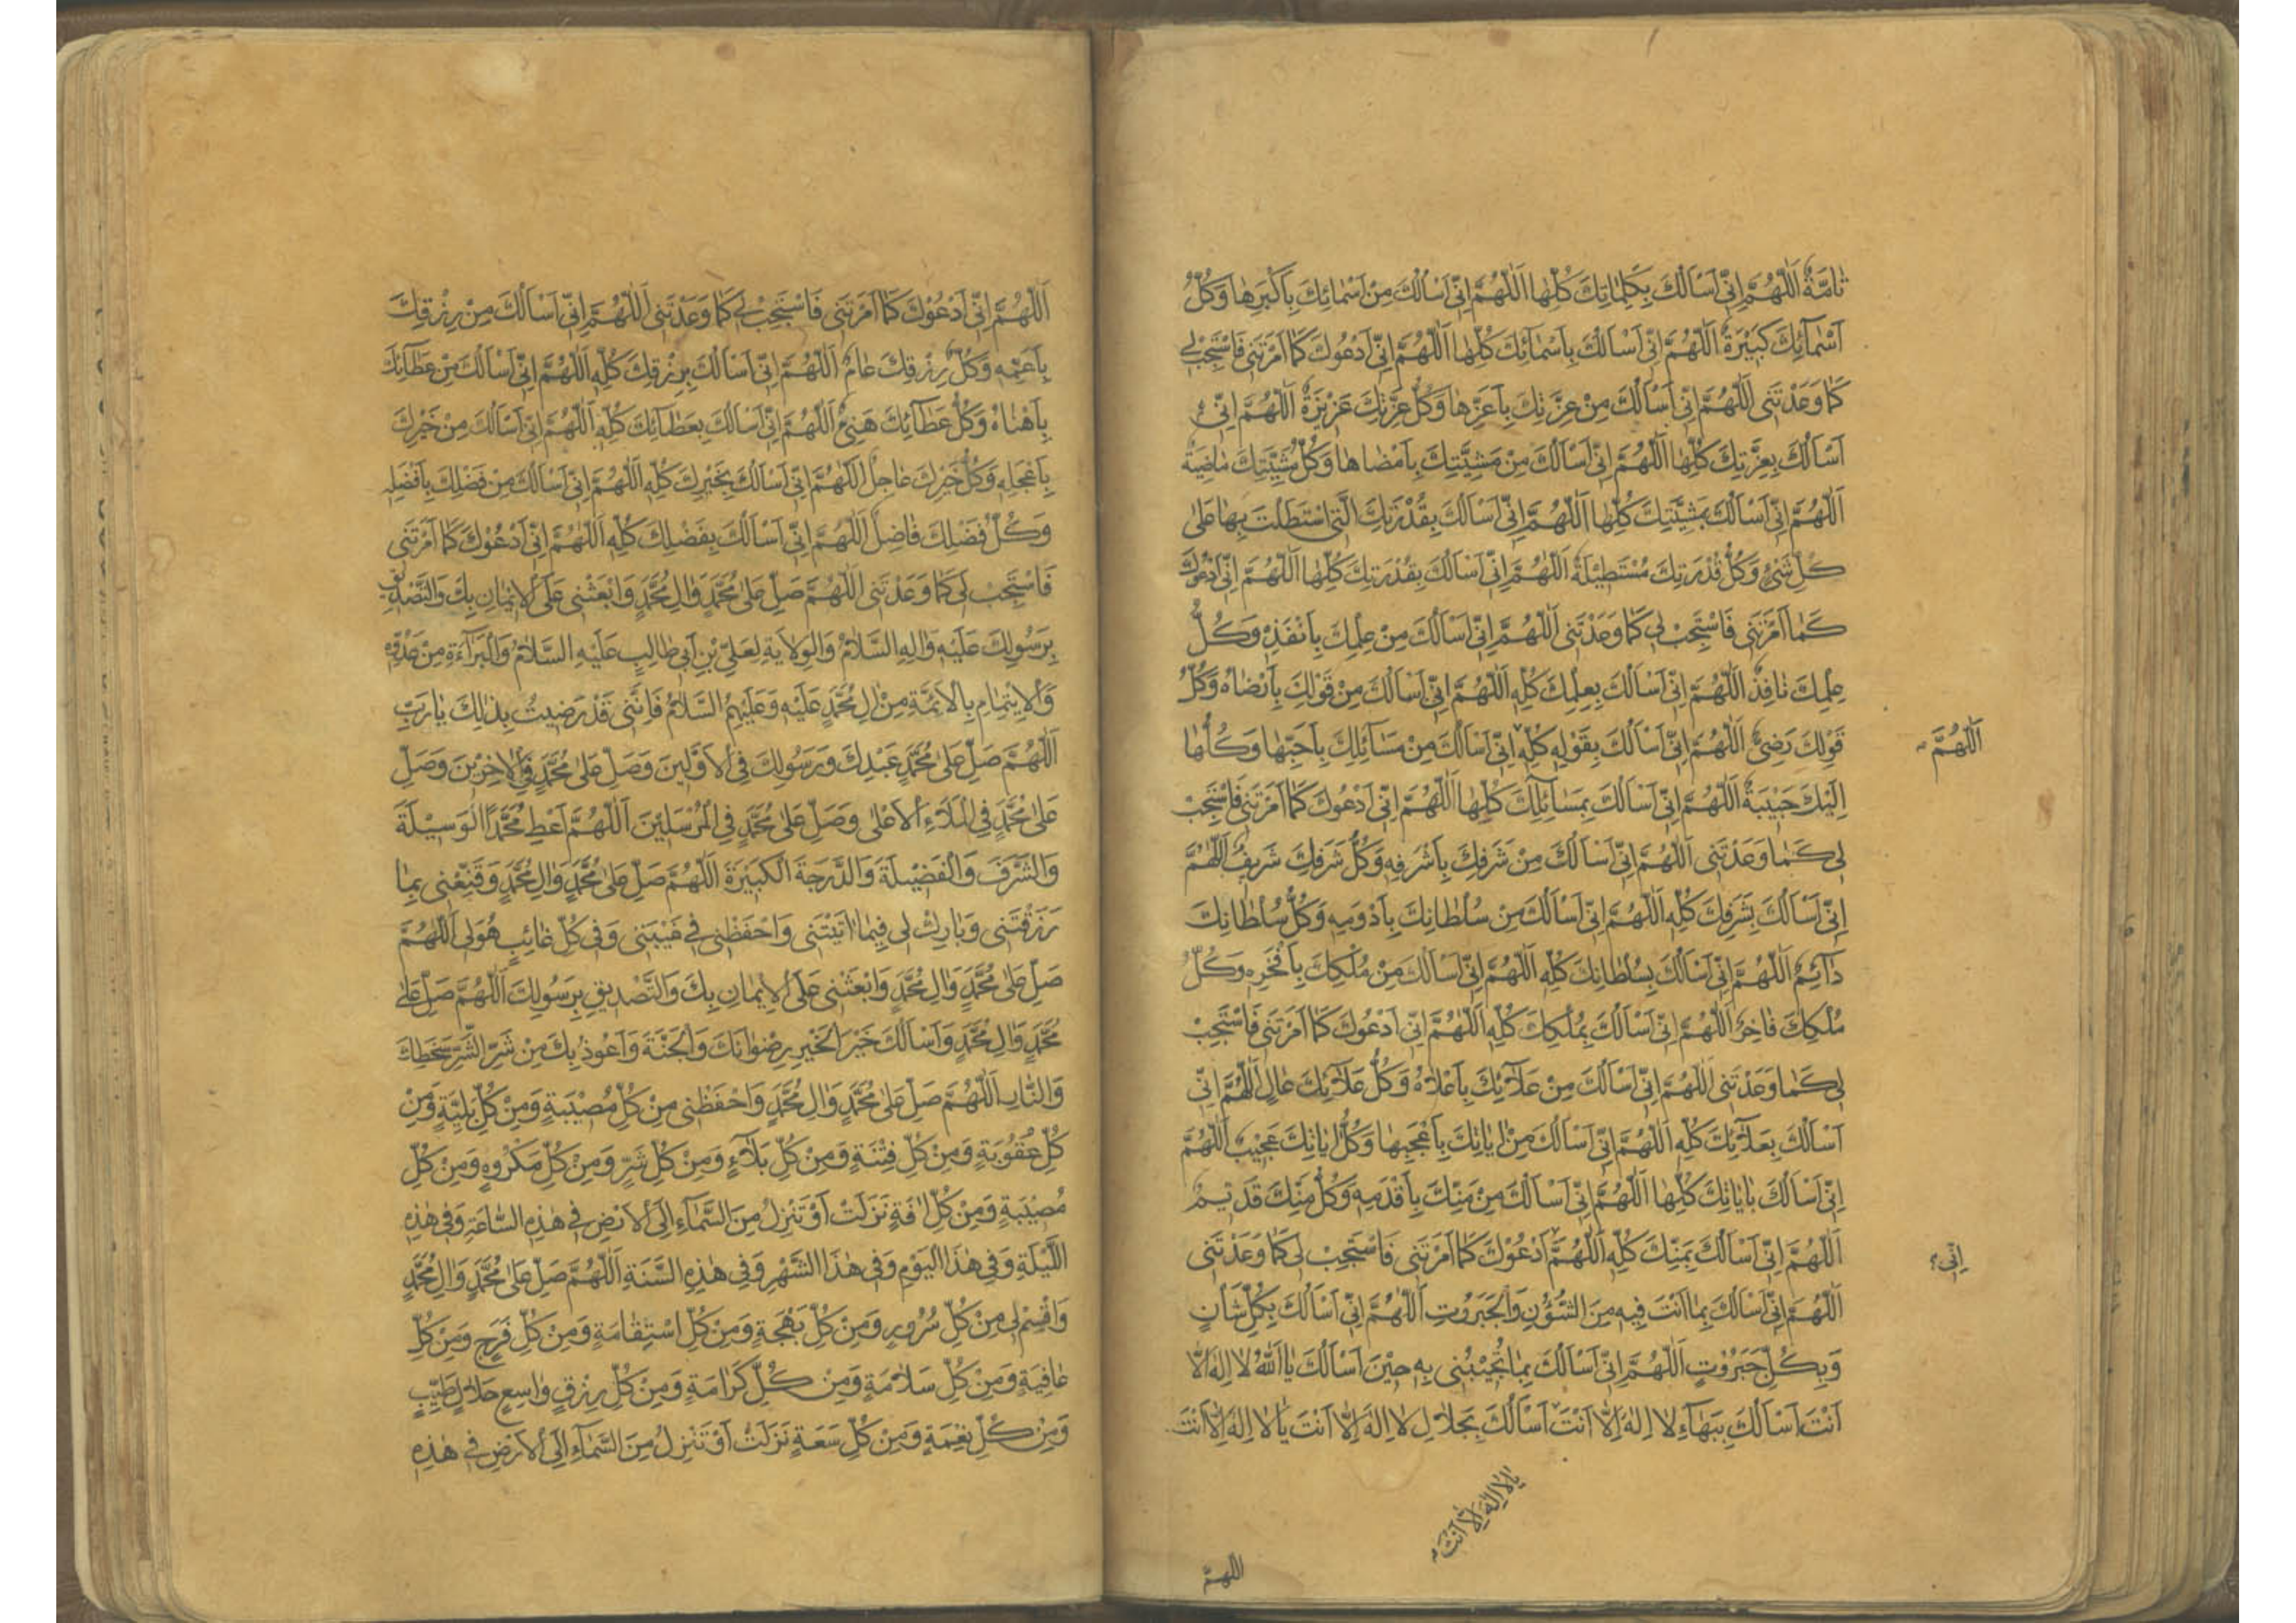 تٰامَّةٌ اَللّٰهُمَّ اِنّىٖ اَسْاَلُكَ بِكَلِمٰاتِكَ كُلِّهٰا اَللّٰهُمَّ اِنّىٖ اَسْاَلُكَ مِنْ اَسْمٰائِكَ بِاَكْبَرِهٰا وَكُلُّ
اَسْمٰآئِكَ كَبيٖرَةٌ اَللّٰهُمَّ اِنّىٖ اَسْاَلُكَ بِاَسْمٰآئِكَ كُلِّهٰا اَللّٰهُمَّ اِنّىٖ اَدْعُوكَ كَمٰا اَمَرْتَنى فَاسْتَجِبْ لى
كَمٰا وَعَدْتَنى اَللّٰهُمَّ اِنّىٖ اَسْاَلُكَ مِنْ عِزَّتِكَ بِاَعَزِّهٰا وَكُلُّ عِزَّتِكَ عَزيٖزَةٌ اَللّٰهُمَّ اِنّىٖ
اَسْاَلُكَ بِعِزَّتِكَ كُلِّهٰا اَللّٰهُمَّ اِنّىٖ اَسْاَلُكَ مِنْ مَشِيَّتِكَ بِاَمْضٰاهٰا وَكُلُّ مَشِيَّتِكَ مٰاضِيَةٌ
اَللّٰهُمَّ اِنّىٖ اَسْاَلُكَ بِمَشِيَّتِكَ كُلِّهٰا اَللّٰهُمَّ اِنّىٖ اَسْاَلُكَ بِقُدْرَتِكَ الَّتى اسْتَطَلْتَ بِهٰا عَلىٰ
كُلِّ شَىْءٍ وَكُلُّ قُدْرَتِكَ مُسْتَطيٖلَةٌ اَللّٰهُمَّ اِنّىٖ اَسْاَلُكَ بِقُدْرَتِكَ كُلِّهٰا اَللّٰهُمَّ اِنّىٖ اَدْعُوكَ
كَمٰا اَمَرْتَنى فَاسْتَجِبْ لى كَمٰا وَعَدْتَنى اَللّٰهُمَّ اِنّىٖ اَسْاَلُكَ مِنْ عِلْمِكَ بِاَنْفَذِهِ وَكُلُّ
عِلْمِكَ نٰافِذٌ اَللّٰهُمَّ اِنّىٖ اَسْاَلُكَ بِعِلْمِكَ كُلِّهِ اَللّٰهُمَّ اِنّىٖ اَسْاَلُكَ مِنْ قَوْلِكَ بِاَرْضٰاهُ وَكُلُّ
قَوْلِكَ رَضِىٌّ اَللّٰهُمَّ اِنّىٖ اَسْاَلُكَ بِقَوْلِهِ كُلِّهِ اِنّىٖ اَسْاَلُكَ مِنْ مَسٰآئِلِكَ بِاَحَبِّهٰا وَكُلُّهٰا
اَللّٰهُمَّ
اِلَيْكَ حَبيٖبَةٌ اَللّٰهُمَّ اِنّىٖ اَسْاَلُكَ بِمَسٰآئِلِكَ كُلِّهٰا اَللّٰهُمَّ اِنّىٖ اَدْعُوكَ كَمٰا اَمَرْتَنى فَاسْتَجِبْ
لى كَمٰا وَعَدْتَنى اَللّٰهُمَّ اِنّىٖ اَسْاَلُكَ مِنْ شَرَفِكَ بِاَشْرَفِهِ وَكُلُّ شَرَفِكَ شَريٖفٌ اَللّٰهُمَّ
اِنّىٖ اَسْاَلُكَ بِشَرَفِكَ كُلِّهِ اَللّٰهُمَّ اِنّىٖ اَسْاَلُكَ مِنْ سُلْطٰانِكَ بِاَدْوَمِهِ وَكُلُّ سُلْطٰانِكَ
دٰآئِمٌ اَللّٰهُمَّ اِنّىٖ اَسْاَلُكَ بِسُلْطٰانِكَ كُلِّهِ اَللّٰهُمَّ اِنّىٖ اَسْاَلُكَ مِنْ مُلْكِكَ بِاَفْخَرِهِ وَكُلُّ
مُلْكِكَ فٰاخِرٌ اَللّٰهُمَّ اِنّىٖ اَسْاَلُكَ بِمُلْكِكَ كُلِّهِ اَللّٰهُمَّ اِنّىٖ اَدْعُوكَ كَمٰا اَمَرْتَنى فَاسْتَجِبْ
لى كَمٰا وَعَدْتَنى اَللّٰهُمَّ اِنّىٖ اَسْاَلُكَ مِنْ عَلٰآئِكَ بِاَعْلٰاهُ وَكُلُّ عَلٰآئِكَ عٰالٍ اَللّٰهُمَّ اِنّىٖ
اَسْاَلُكَ بِعَلٰآئِكَ كُلِّهِ اَللّٰهُمَّ اِنّىٖ اَسْاَلُكَ مِنْ اٰيٰاتِكَ بِاَعْجَبِهٰا وَكُلُّ اٰيٰاتِكَ عَجيٖبٌ اَللّٰهُمَّ
اِنّىٖ اَسْاَلُكَ بِاٰيٰاتِكَ كُلِّهٰا اَللّٰهُمَّ اِنّىٖ اَسْاَلُكَ مِنْ مَنِّكَ بِاَقْدَمِهِ وَكُلُّ مَنِّكَ قَديٖمٌ
اَللّٰهُمَّ اِنّىٖ اَسْاَلُكَ بِمَنِّكَ كُلِّهِ اَللّٰهُمَّ اَدْعُوْكَ كَمٰا اَمَرْتَنى فَاسْتَجِبْ لى كَمٰا وَعَدْتَنى
اِنّى
اَللّٰهُمَّ اِنّىٖ اَسْاَلُكَ بِمٰا اَنْتَ فِيهِ مِنَ الشُّؤُنِ وَالْجَبَرُوتِ اَللّٰهُمَّ اِنّىٖ اَسْاَلُكَ بِكُلِّ شَأْنٍ
وَبِكُلِّ جَبَرُوْتٍ اَللّٰهُمَّ اِنّىٖ اَسْاَلُكَ بِمٰا تُجيٖبُنى بِهِ حيٖنَ اَسْاَلُكَ يٰا اَللّٰهُ لٰا اِلٰهَ اِلّٰا
اَنْتَ اَسْاَلُكَ بِبَهٰآءِ لٰا اِلٰهَ اِلّٰا اَنْتَ اَسْاَلُكَ بِجَلٰالِ لٰا اِلٰهَ اِلّٰا اَنْتَ يٰا لٰا اِلٰهَ اِلّٰا اَنْتَ
يٰا لٰا اِلٰهَ اِلّٰا اَنْتَ
اللهمّ
اَللّٰهُمَّ اِنّىٖ اَدْعُوْكَ كَمٰا اَمَرْتَنى فَاسْتَجِبْ لى كَمٰا وَعَدْتَنى اَللّٰهُمَّ اِنّىٖ اَسْاَلُكَ مِنْ رِزْقِكَ
بِاَعَمِّهِ وَكُلُّ رِزْقِكَ عٰامٌّ اَللّٰهُمَّ اِنّىٖ اَسْاَلُكَ بِرِزْقِكَ كُلِّهِ اَللّٰهُمَّ اِنّىٖ اَسْاَلُكَ مِنْ عَطٰآئِكَ
بِاَهْنٰاهُ وَكُلُّ عَطٰآئِكَ هَنِىءٌ اَللّٰهُمَّ اِنّىٖ اَسْاَلُكَ بِعَطٰآئِكَ كُلِّهِ اَللّٰهُمَّ اِنّىٖ اَسْاَلُكَ مِنْ خَيْرِكَ
بِاَعْجَلِهِ وَكُلُّ خَيْرِكَ عٰاجِلٌ اَللّٰهُمَّ اِنّىٖ اَسْاَلُكَ بِخَيْرِكَ كُلِّهِ اَللّٰهُمَّ اِنّىٖ اَسْاَلُكَ مِنْ فَضْلِكَ بِاَفْضَلِهِ
وَكُلُّ فَضْلِكَ فٰاضِلٌ اَللّٰهُمَّ اِنّىٖ اَسْاَلُكَ بِفَضْلِكَ كُلِّهِ اَللّٰهُمَّ اِنّىٖ اَدْعُوْكَ كَمٰا اَمَرْتَنى
فَاسْتَجِبْ لى كَمٰا وَعَدْتَنى اَللّٰهُمَّ صَلِّ عَلىٰ مُحَمَّدٍ وَاٰلِ مُحَمَّدٍ وَابْعَثْنى عَلَى الْايٖمٰانِ بِكَ وَالتَّصْديٖقِ
بِرَسُولِكَ عَلَيْهِ وَاٰلِهِ السَّلٰامُ وَالْوِلٰايَةِ لِعَلِىِّ بْنِ اَبى طٰالِبٍ عَلَيْهِ السَّلٰامُ وَالْبَرٰآءَةِ مِنْ عَدُوِّهِ
وَالْاِيتِمٰامِ بِالْاَئِمَّةِ مِنْ اٰلِ مُحَمَّدٍ عَلَيْهِ وَعَلَيْهِمُ السَّلٰامُ فَاِنَّنى قَدْ رَضيٖتُ بِذٰلِكَ يٰا رَبِّ
اَللّٰهُمَّ صَلِّ عَلىٰ مُحَمَّدٍ عَبْدِكَ وَرَسُولِكَ فِى الْاَوَّليٖنَ وَصَلِّ عَلىٰ مُحَمَّدٍ فِى الْاٰخِريٖنَ وَصَلِّ
عَلىٰ مُحَمَّدٍ فِى الْمَلَاءِ الْاَعْلىٰ وَصَلِّ عَلىٰ مُحَمَّدٍ فِى الْمُرْسَليٖنَ اَللّٰهُمَّ اَعْطِ مُحَمَّدًا الْوَسيٖلَةَ
وَالشَّرَفَ وَالْفَضيٖلَةَ وَالدَّرَجَةَ الْكَبيٖرَةَ اَللّٰهُمَّ صَلِّ عَلىٰ مُحَمَّدٍ وَاٰلِ مُحَمَّدٍ وَقَنِّعْنى بِمٰا
رَزَقْتَنى وَبٰارِكْ لى فيٖمٰا اٰتَيْتَنى وَاحْفَظْنى فى غَيْبَتى وَفى كُلِّ غٰائِبٍ هُوَ لى اَللّٰهُمَّ
صَلِّ عَلىٰ مُحَمَّدٍ وَاٰلِ مُحَمَّدٍ وَابْعَثْنى عَلَى الْايٖمٰانِ بِكَ وَالتَّصْديٖقِ بِرَسُولِكَ اَللّٰهُمَّ صَلِّ عَلىٰ
مُحَمَّدٍ وَاٰلِ مُحَمَّدٍ وَاَسْاَلُكَ خَيْرَ الْخَيْرِ رِضْوٰانَكَ وَالْجَنَّةَ وَاَعُوذُ بِكَ مِنْ شَرِّ الشَّرِّ سَخَطِكَ
وَالنّٰارِ اَللّٰهُمَّ صَلِّ عَلىٰ مُحَمَّدٍ وَاٰلِ مُحَمَّدٍ وَاحْفَظْنى مِنْ كُلِّ مُصيٖبَةٍ وَمِنْ كُلِّ بَلِيَّةٍ وَمِنْ
كُلِّ عُقُوْبَةٍ وَمِنْ كُلِّ فِتْنَةٍ وَمِنْ كُلِّ بَلٰآءٍ وَمِنْ كُلِّ شَرٍّ وَمِنْ كُلِّ مَكْرُوهٍ وَمِنْ كُلِّ
مُصيٖبَةٍ وَمِنْ كُلِّ اٰفَةٍ نَزَلَتْ اَوْ تَنْزِلُ مِنَ السَّمٰآءِ اِلَى الْاَرْضِ فى هٰذِهِ السّٰاعَةِ وَفى هٰذِهِ
اللَّيْلَةِ وَفى هٰذَا الْيَوْمِ وَفى هٰذَا الشَّهْرِ وَفى هٰذِهِ السَّنَةِ اَللّٰهُمَّ صَلِّ عَلىٰ مُحَمَّدٍ وَاٰلِ مُحَمَّدٍ
وَاقْسِمْ لى مِنْ كُلِّ سُرُورٍ وَمِنْ كُلِّ بَهْجَةٍ وَمِنْ كُلِّ اسْتِقٰامَةٍ وَمِنْ كُلِّ فَرَجٍ وَمِنْ كُلِّ
عٰافِيَةٍ وَمِنْ كُلِّ سَلٰامَةٍ وَمِنْ كُلِّ كَرٰامَةٍ وَمِنْ كُلِّ رِزْقٍ وٰاسِعٍ حَلٰالٍ طَيِّبٍ
وَمِنْ كُلِّ نِعْمَةٍ وَمِنْ كُلِّ سَعَةٍ نَزَلَتْ اَوْ تَنْزِلُ مِنَ السَّمٰآءِ اِلَى الْاَرْضِ فى هٰذِهِ